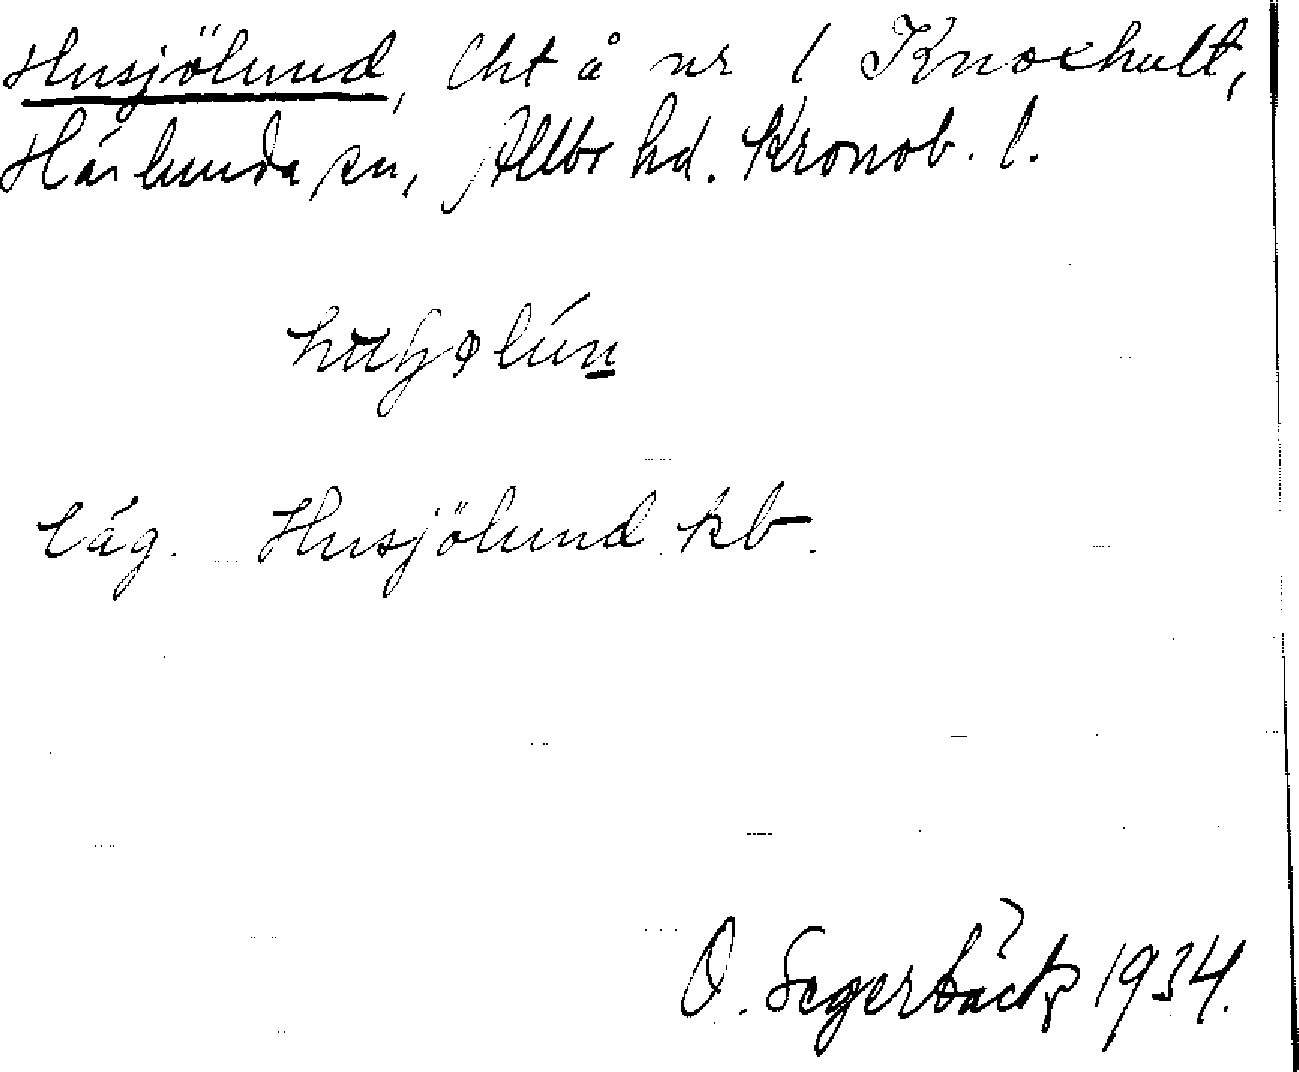 Husjölund, lht å nr 1 Knoxhult,
Härlunda sn, Allbo hd. Kronob. l.
Läg. Husjölund kb.
O. Segerbäck 1934.